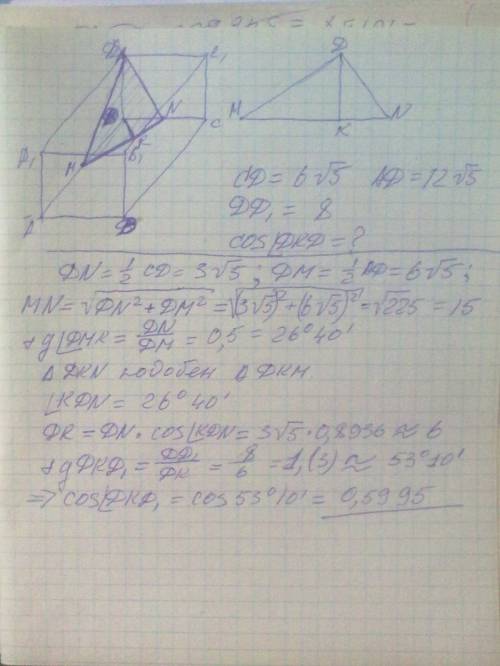 D₁ C₁
N C
A₁ M B₁ K
A
D
M K N
CD = 6√5 AD = 12√5
DD₁ = 8
cos∠DKD = ?
DN = ½ CD = 3√5 ; DM = ½ AD = 6√5 ;
MN = √DN² + DM² = √(3√5)² + (6√5)² = √225 = 15
tg∠DMK = DN/DM = 0,5 = 26°40'
△ DKN подобен △ DKM
∠KDN = 26°40'
DK = DN · cos∠KDN = 3√5 · 0,8936 ≈ 6
tg DKD₁ = DD₁/DK = 8/6 = 1,(3) ≈ 53°10'
=> cos∠DKD₁ = cos 53°10' = 0,5995